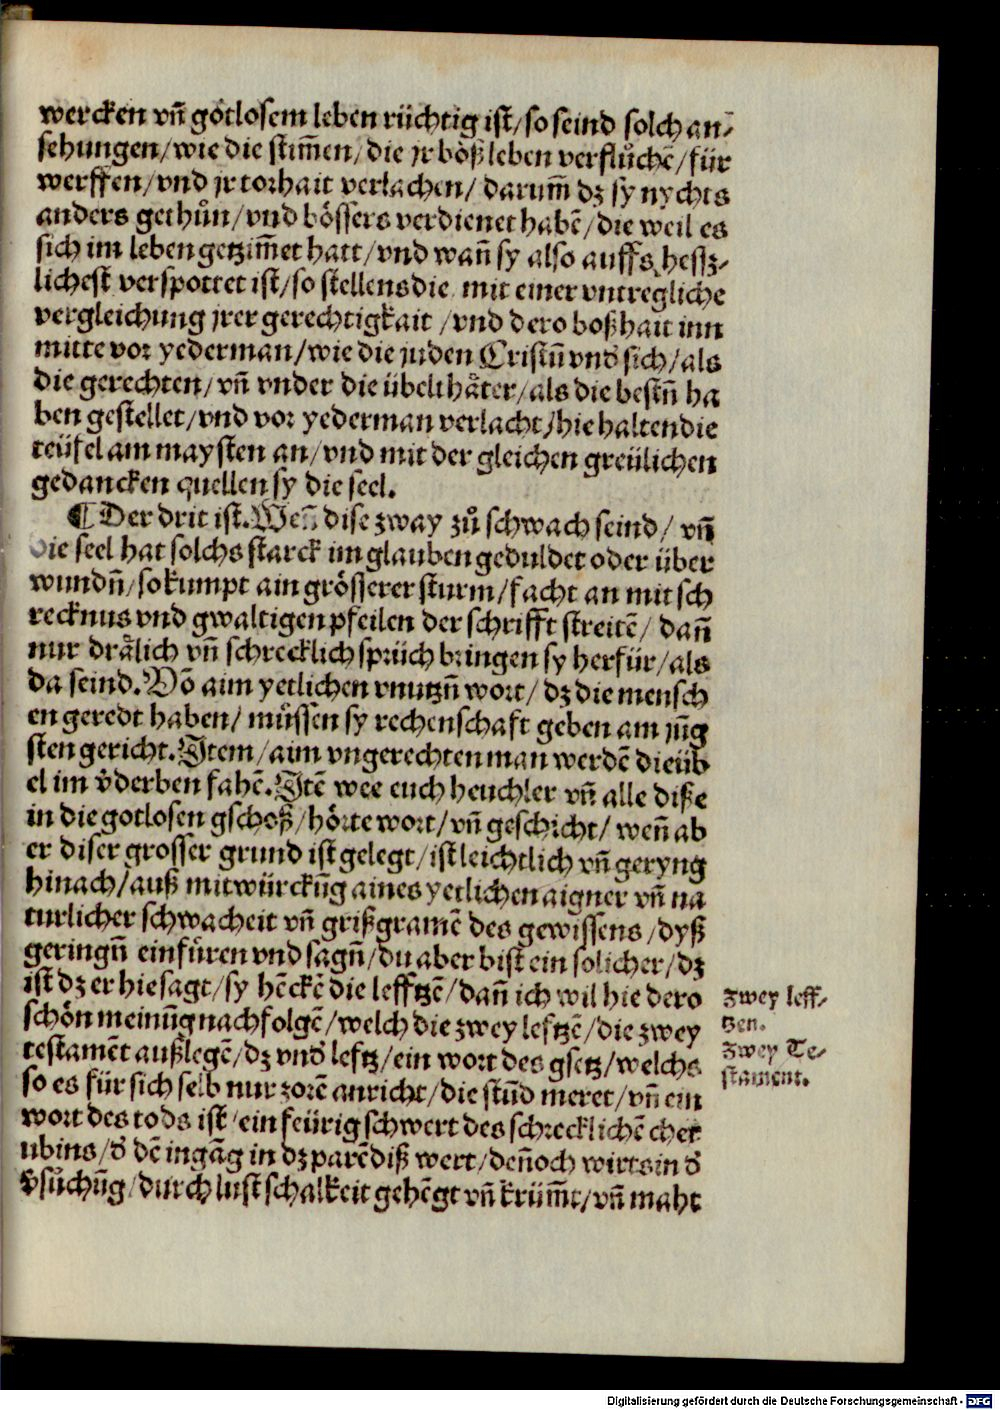 wercken vñ götlosem leben rüchtig ist/ so seind solch an-
sehungen/ wie die stim̃en/ die jr böß leben verflůchē/ für
werffen/ vnd jr torhait verlachen/ darum̃ dz sy nychts
anders gethůn/ vnd bössers verdienet habē/ die weil es
sich im leben getzim̃et hatt/ vnd wañ sy also auffs hessz-
lichest verspottet ist/ so stellens die mit einer vntregliche
vergleichung jrer gerechtigkait/ vnd dero boßhait inn
mitte vor yederman/ wie die juden Cristū vnd̾ sich/ als
die gerechten/ vñ vnder die übelthåter/ als die bestñ ha
ben gestellet/ vnd vor yederman verlacht/ hie halten die
teüfel am maysten an/ vnd mit der gleichen greülichen
gedancken quellen sy die seel.
¶ Der drit ist. Weñ dise zway zů schwach seind/ vñ
die seel hat solchs starck im glauben geduldet oder über
wundñ/ so kumpt ain grösserer sturm/ facht an mit sch
recknus vnd gwaltigen pfeilen der schrifft streitē/ dañ
nur drålich vñ schrecklich sprüch bringen sy herfür/ als
da seind. Võ aim yetlichen vnutzñ wort/ dz die mensch
en geredt haben/ müssen sy rechenschaft geben am jũg
sten gericht. Item/ aim vngerechten man werdē die üb
el im v̾derben fahē. Itē wee euch heuchler vñ alle diße
in die gotlosen gschoß/ hörte wort/ vñ geschicht/ weñ ab
er diser grosser grund ist gelegt/ ist leichtlich vñ geryng
hinach/ auß mitwürckũg aines yetlichen aigner vñ na
turlicher schwacheit vñ grißgramē des gewissens/ dyß
geringñ einfüren vnd sagñ/ du aber bist ein solicher/ dz
ist dz er hie sagt/ sy hēckē die lefftzē/ dañ ich wil hie dero
schön meinũg nachfolgē/ welch die zwey leftzē/ die zwey
testamēt außlegē/ dz vnd̾ leftz/ ein wort des gsetz/ welchs
so es für sich selb nur zorē anricht/ die sũd meret/ vñ ein
wort des tods ist/ ein feürig schwert des schrecklichē cher
ubins/ d̾ dē ingãg in dz parēdiß wert/ deñoch wirts in d̾
v̾sůchũg/ durch lust schalkeit gehēgt vñ krüm̃t/ vñ maht
zwey leff-
tzen.
zwey Te-
stament.
Digitalisierung gefördert durch die Deutsche Forschungsgemeinschaft - DFG